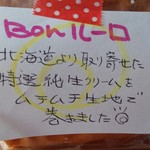 Bonルーロ
北海道より取り寄せた
特選純生クリームを
ムチムチ生地で
巻きました